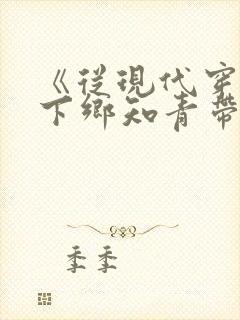 《从現代穿
下鄉知青带
季季